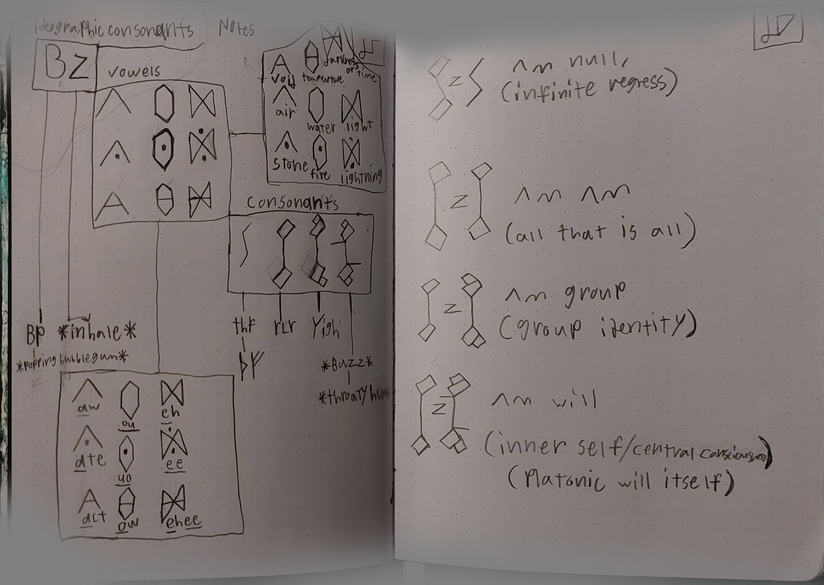 ideographic consonants
Notes
BZ
vowels
void
temperature
darkness
or time
air
water
light
stone
fire
lightning
consonants
BP
*inhale*
*popping bubblegum*
thr
rLr
Yigh
ÞF
*Buzz*
*throaty hum*
aw
ou
eh
ate
yo
ee
act
ow
ehee
z
ʌm null,
(infinite regress)
z
ʌm ʌm
(all that is all)
z
ʌm group
(group identity)
z
ʌm will
(inner self/central conscious)
(Platonic will itself)